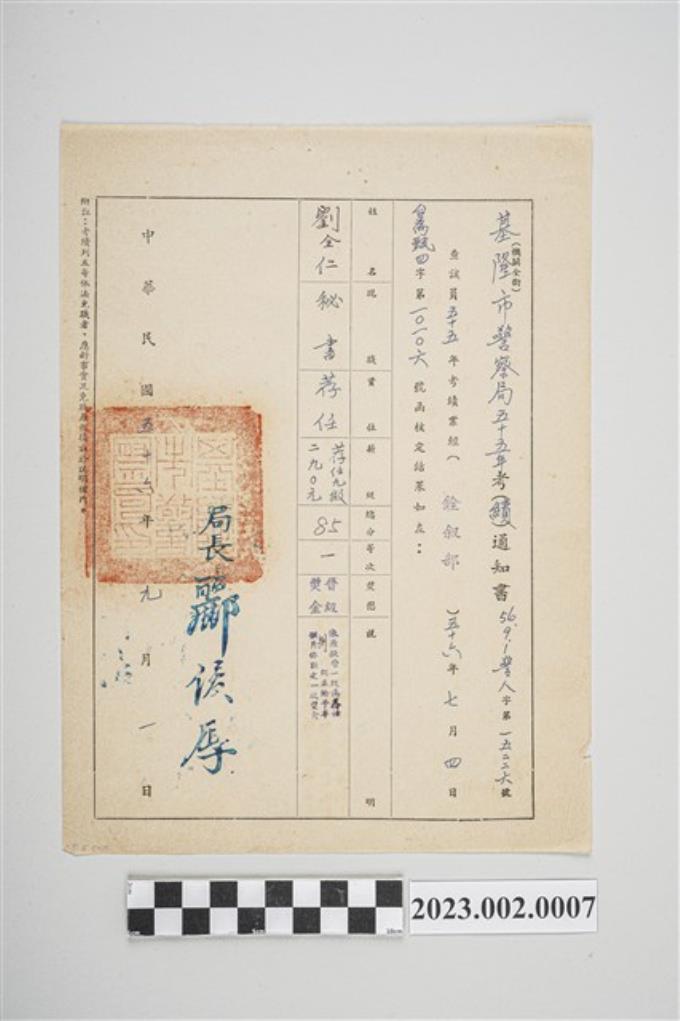 基隆市警察局五十五年考(績)通知書 56.9.1警人字第一五二二六號
(機關全銜)
查該員五十五年考績業經(銓敘部)五十六年七月四日
甄四字第一〇一〇六號函核定結果如左：
姓名 現職 實任 薪級 總分 等次 獎懲 說明
劉全仁 秘書 荐任 荐任九級二九〇元 85 一 晉級獎金
局長 酈俟厚
中華民國五十六年九月一日
附註：考績列五等依法免職者，應將事實及免職